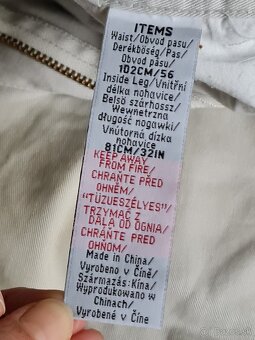 ITEMS
Waist/Obvod pasu/
Derékbőség/Pas/
Obvod pasu/
102CM/56
Inside Leg/Vnitřní
délka nohavice/
Belső szárhossz/
Wewnętrzna
długość nogawki/
Vnútorná dízka
nohavice
81CM/32IN
KEEP AWAY
FROM FIRE/
CHRAŇTE PŘED
OHNĚM/
"TŰZUESZÉLYES"/
TRZYMAĆ Z
DALA OD OGNIA/
CHRÁŇTE PRED
OHŇOM/
Made in China/
Vyrobeno v Číně/
Származás: Kína/
Wyprodukowano w
Chinach/
Vyrobené v Číne